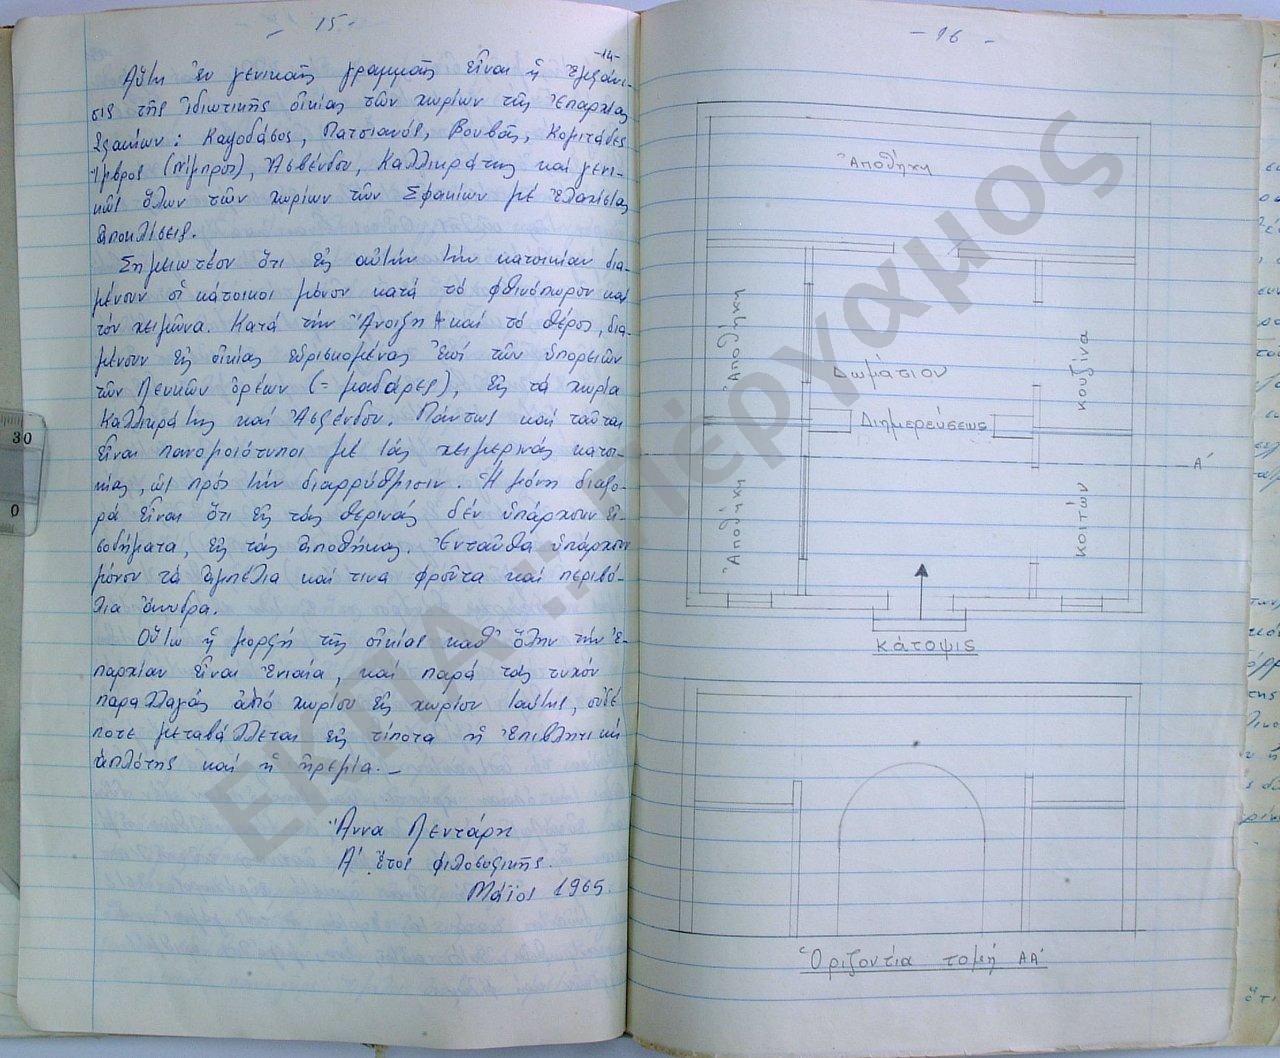 - 15 -
-14-
Αὕτη ἐν γενικαῖς γραμμαῖς εἶναι ἡ ἐμφάνι-
σις τῆς ἰδιωτικῆς οἰκίας τῶν χωρίων τῆς ἐπαρχίας
Σφακίων: Καψοδάσος, Πατσιανός, Βουβᾶς, Κομιτάδες
Ἴμβρος (Νίμπρος), Ἀσφένδου, Καλλικράτης καὶ γενι-
κῶς ὅλων τῶν χωρίων τῶν Σφακίων μὲ ἐλαχίστας
ἀποκλίσεις.
Σημειωτέον ὅτι εἰς αὐτὴν τὴν κατοικίαν δια-
μένουν οἱ κάτοικοι μόνον κατὰ τὸ φθινόπωρον καὶ
τὸν χειμῶνα. Κατὰ τὴν Ἄνοιξη καὶ τὸ θέρος, δια-
μένουν εἰς οἰκίας εὑρισκομένας ἐπὶ τῶν ὑπορειῶν
τῶν Λευκῶν ὀρέων (= μαδάρες), εἰς τὰ χωρία
Καλλικράτης καὶ Ἀσφένδου. Πάντως καὶ ταῦται
εἶναι πανομοιότυποι μὲ τὰς χειμερινάς κατοι-
κίας, ὡς πρὸς τὴν διαρρύθμισιν. Ἡ μόνη διαφο-
ρά εἶναι ὅτι εἰς τὰς θερινάς δὲν ὑπάρχουν εἰ-
σοδήματα, εἰς τὰς ἀποθήκας. Ἐνταῦθα ὑπάρχουν
μόνον τὰ ἀμπέλια καὶ τινα φροῦτα καὶ περιβό-
λια ἄνυδρα.
Οὕτω ἡ μορφή τῆς οἰκίας καθ' ὅλην τὴν ἐ-
παρχίαν εἶναι ἑνιαία, καὶ παρὰ τὰς τυχόν
παραλλαγάς ἀπὸ χωρίου εἰς χωρίον ταύτης, οὐδέ
ποτε μεταβάλλεται εἰς τίποτα ἡ ἐπιβλητική
ἁπλότης καὶ ἡ ἠρεμία. _
Ἄννα Λεντάρη
Α' ἔτος φιλοσοφικῆς.
Μάϊος 1965.
- 16 -
Ἀποθήκη
Ἀποθήκη
Δωμάτιον
Διημερεύσεως
κουζίνα
Α'
Ἀποθήκη
κοιτών
κάτοψις
Ὁριζοντία τομή ΑΑ'
30
0
ΕΚΠΑ...Πέργαμος